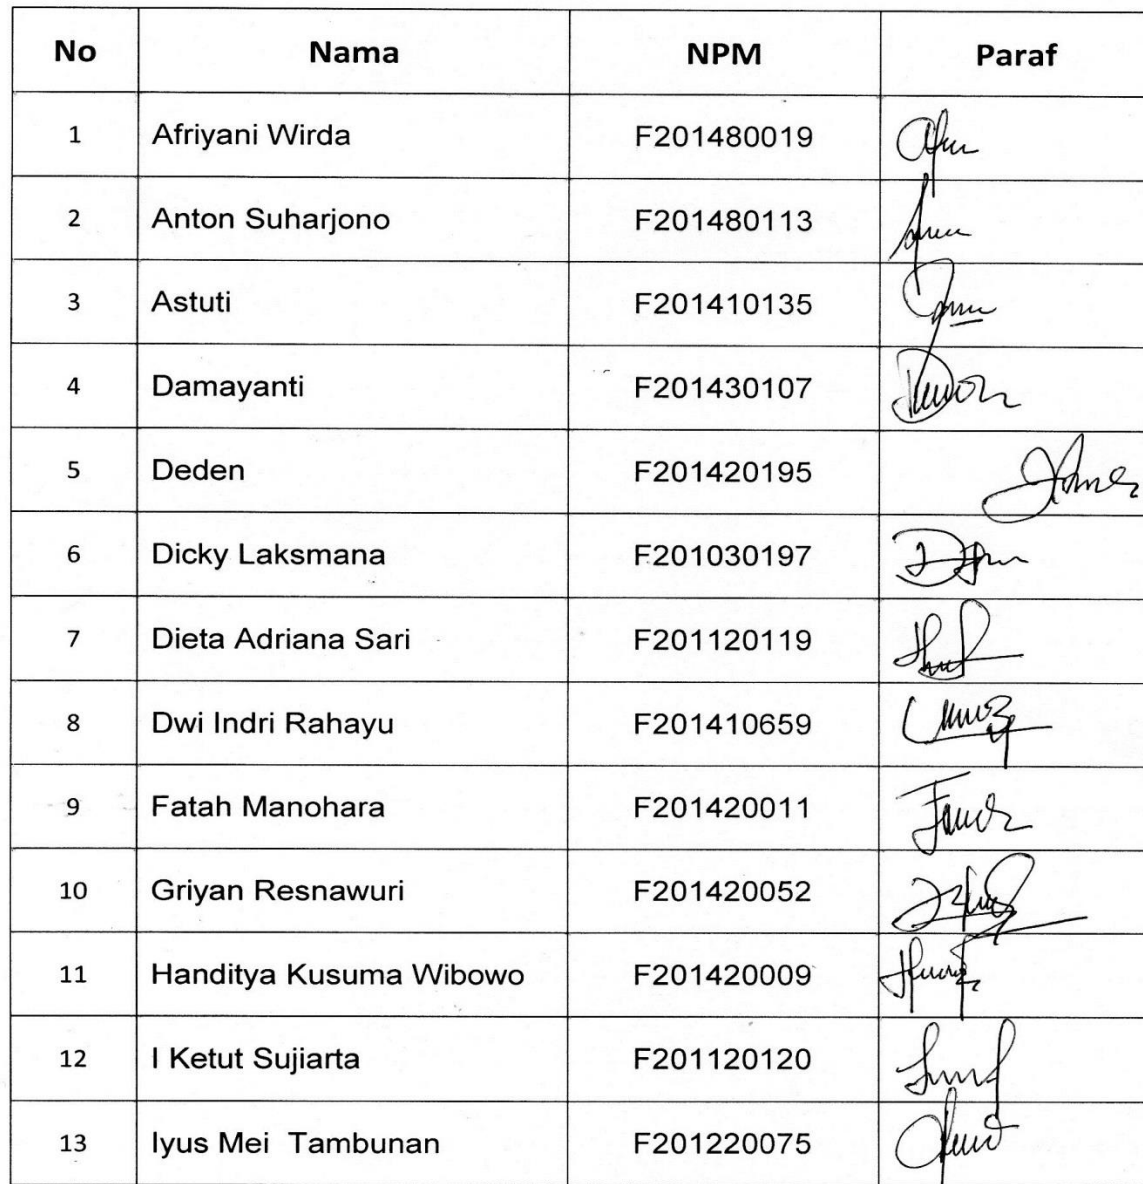 No Nama NPM Paraf
1 Afriyani Wirda F201480019
2 Anton Suharjono F201480113
3 Astuti F201410135
4 Damayanti F201430107
5 Deden F201420195
6 Dicky Laksmana F201030197
7 Dieta Adriana Sari F201120119
8 Dwi Indri Rahayu F201410659
9 Fatah Manohara F201420011
10 Griyan Resnawuri F201420052
11 Handitya Kusuma Wibowo F201420009
12 I Ketut Sujiarta F201120120
13 Iyus Mei Tambunan F201220075